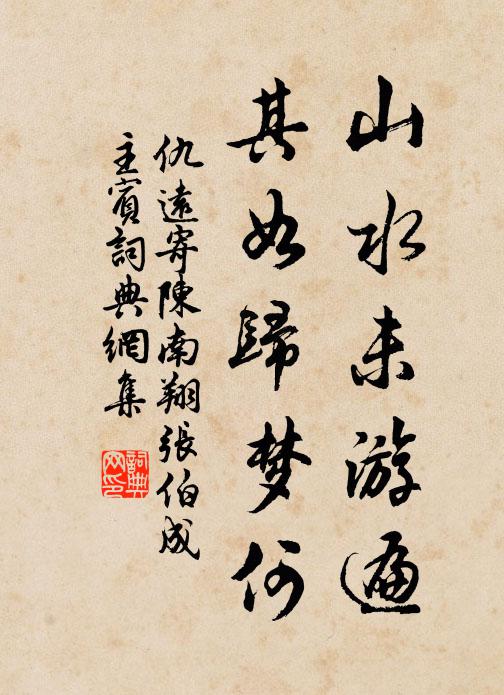 山水未游遍
其如歸梦何
仇遠寄陳南翔張伯成
主賓詞典網集
詞典网印